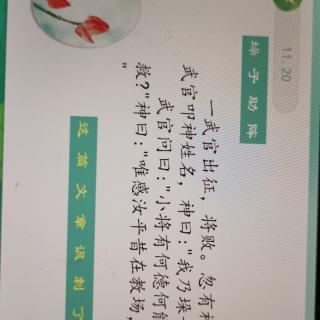 11.20
垛子助阵
一武官出征，将败。忽有神
武官叩神姓名，神曰："我乃垛
武官问曰："小将有何德何能
救？"神曰："唯感汝平昔在教场，
"
这篇文章讽刺了